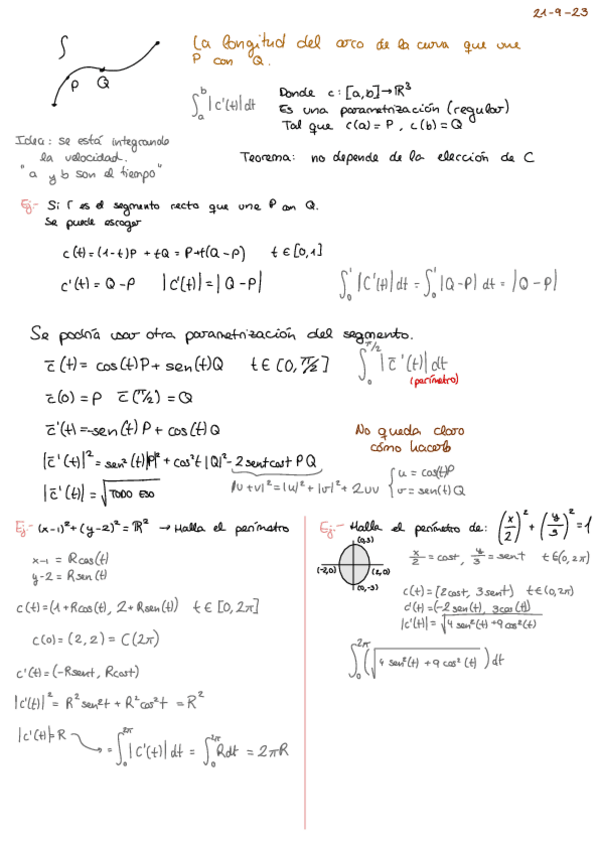 21-9-23
La longitud del arco de la curva que une
P con Q.
P Q
∫_a^b |c'(t)| dt
Donde c: [a,b] → ℝ³
Es una parametrización (regular)
Tal que c(a) = P, c(b) = Q
Idea: se está integrando
la velocidad.
"a y b son el tiempo"
Teorema: no depende de la elección de C
Ej:- Si Γ es el segmento recto que une P con Q.
Se puede escoger
c(t) = (1-t)P + tQ = P+t(Q-P) t ∈ [0,1]
c'(t) = Q-P |c'(t)| = |Q-P| ∫_0^1 |c'(t)| dt = ∫_0^1 |Q-P| dt = |Q-P|
Se podría usar otra parametrización del segmento.
c̄(t) = cos(t)P + sen(t)Q t ∈ [0, π/2] ∫_0^{π/2} |c̄'(t)| dt
(perímetro)
c̄(0) = P c̄(π/2) = Q
c̄'(t) = -sen(t)P + cos(t)Q
No queda claro
cómo hacerlo
|c̄'(t)|² = sen²(t)|P|² + cos²t |Q|² - 2 sent cost PQ
|u+v|² = |u|² + |v|² + 2uv { u = cos(t)P
v = sen(t)Q
|c̄'(t)| = √TODO ESO
Ej:- (x-1)² + (y-2)² = R² → Halla el perímetro
x-1 = R cos(t)
y-2 = R sen(t)
c(t) = (1+Rcos(t), 2+Rsen(t)) t ∈ [0, 2π]
c(0) = (2,2) = C(2π)
c'(t) = (-Rsent, Rcost)
|c'(t)|² = R² sen²t + R² cos²t = R²
|c'(t)| = R → = ∫_0^{2π} |c'(t)| dt = ∫_0^{2π} R dt = 2πR
Ej:- Halla el perímetro de: (x/2)² + (y/3)² = 1
(0,3)
(-2,0) (2,0)
(0,-3)
x/2 = cost, y/3 = sent t ∈ (0, 2π)
c(t) = (2cost, 3sent) t ∈ (0, 2π)
c'(t) = (-2sen(t), 3cos(t))
|c'(t)| = √4sen²(t) + 9cos²(t)
∫_0^{2π} (√4 sen²(t) + 9 cos²(t)) dt